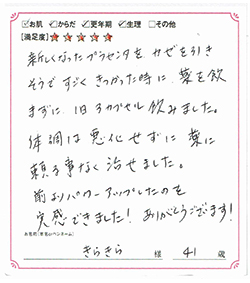 ☑お肌 ☑からだ ☑更年期 ☑生理 □その他
【満足度】★★★★★
新しくなったプラセンタを カゼを引き
そうで すごく きつかった時に、薬を飲
まずに、1日3カプセル 飲みました。
体調は 悪化せずに 薬に
頼る事なく 治せました。
前よりパワーアップしたのを
実感できました! ありがとうございます!
お名前(匿名orペンネーム)
きらきら 様 41 歳